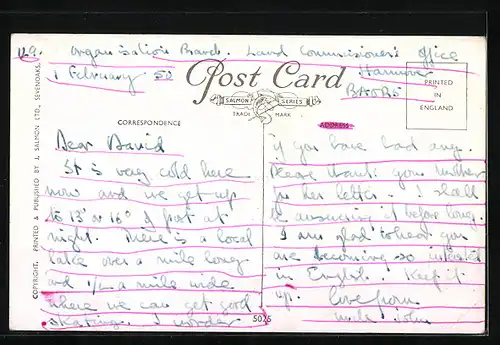 Organisation Branch. Land Commissioner's Office
1 February 52 Hannover
BAORE
Post Card
SALMON SERIES
TRADE MARK
PRINTED
IN
ENGLAND
CORRESPONDENCE
ADDRESS
COPYRIGHT. PRINTED & PUBLISHED BY J. SALMON LTD., SEVENOAKS.
Dear David
It is very cold here
now and we get up
to 13° or 16° of frost at
night. There is a local
lake over a mile long
and a mile wide
where we can get good
skating. I wonder
if you have had any.
Please thank your Mother
for her letter - I shall
be answering it before long.
I am glad to hear you
are becoming so interested
in English. Keep it
up. Love from
Uncle John
5025